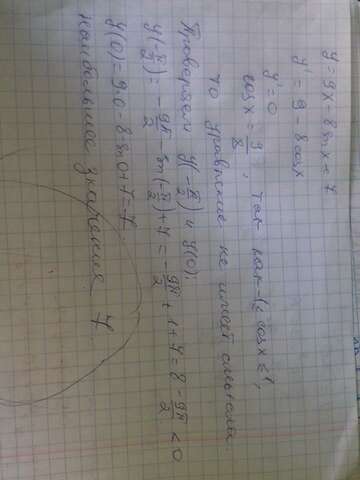 y = 9x - 8 sin x + 7
y' = 9 - 8 cos x
y' = 0
cos x = 9/8, так как -1 ≤ cos x ≤ 1,
то уравнение не имеет смысла.
Проверяем y(-π/2) и y(0):
y(-π/2) = -9π/2 - sin(-π/2) + 7 = -9π/2 + 1 + 7 = 8 - 9π/2 < 0
y(0) = 9·0 - 8·sin0 + 7 = 7
наибольшое значение 7